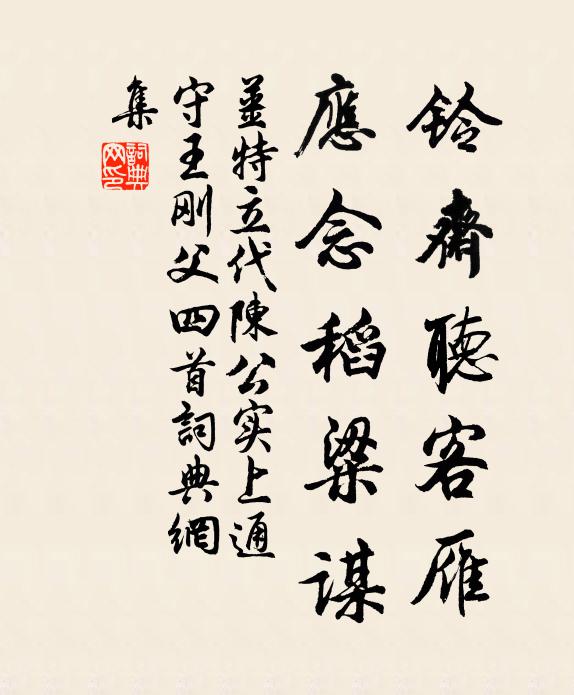 铃齋聽客雁
應念稻粱謀
姜特立代陳公实上通
守王刚父四首詞典網
集
詞典網印